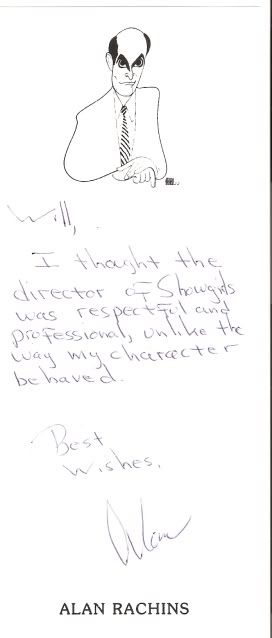 Will,
I thought the
director of Showgirls
was respectful and
professional, unlike the
way my character
behaved.
Best
Wishes,
Alan
ALAN RACHINS